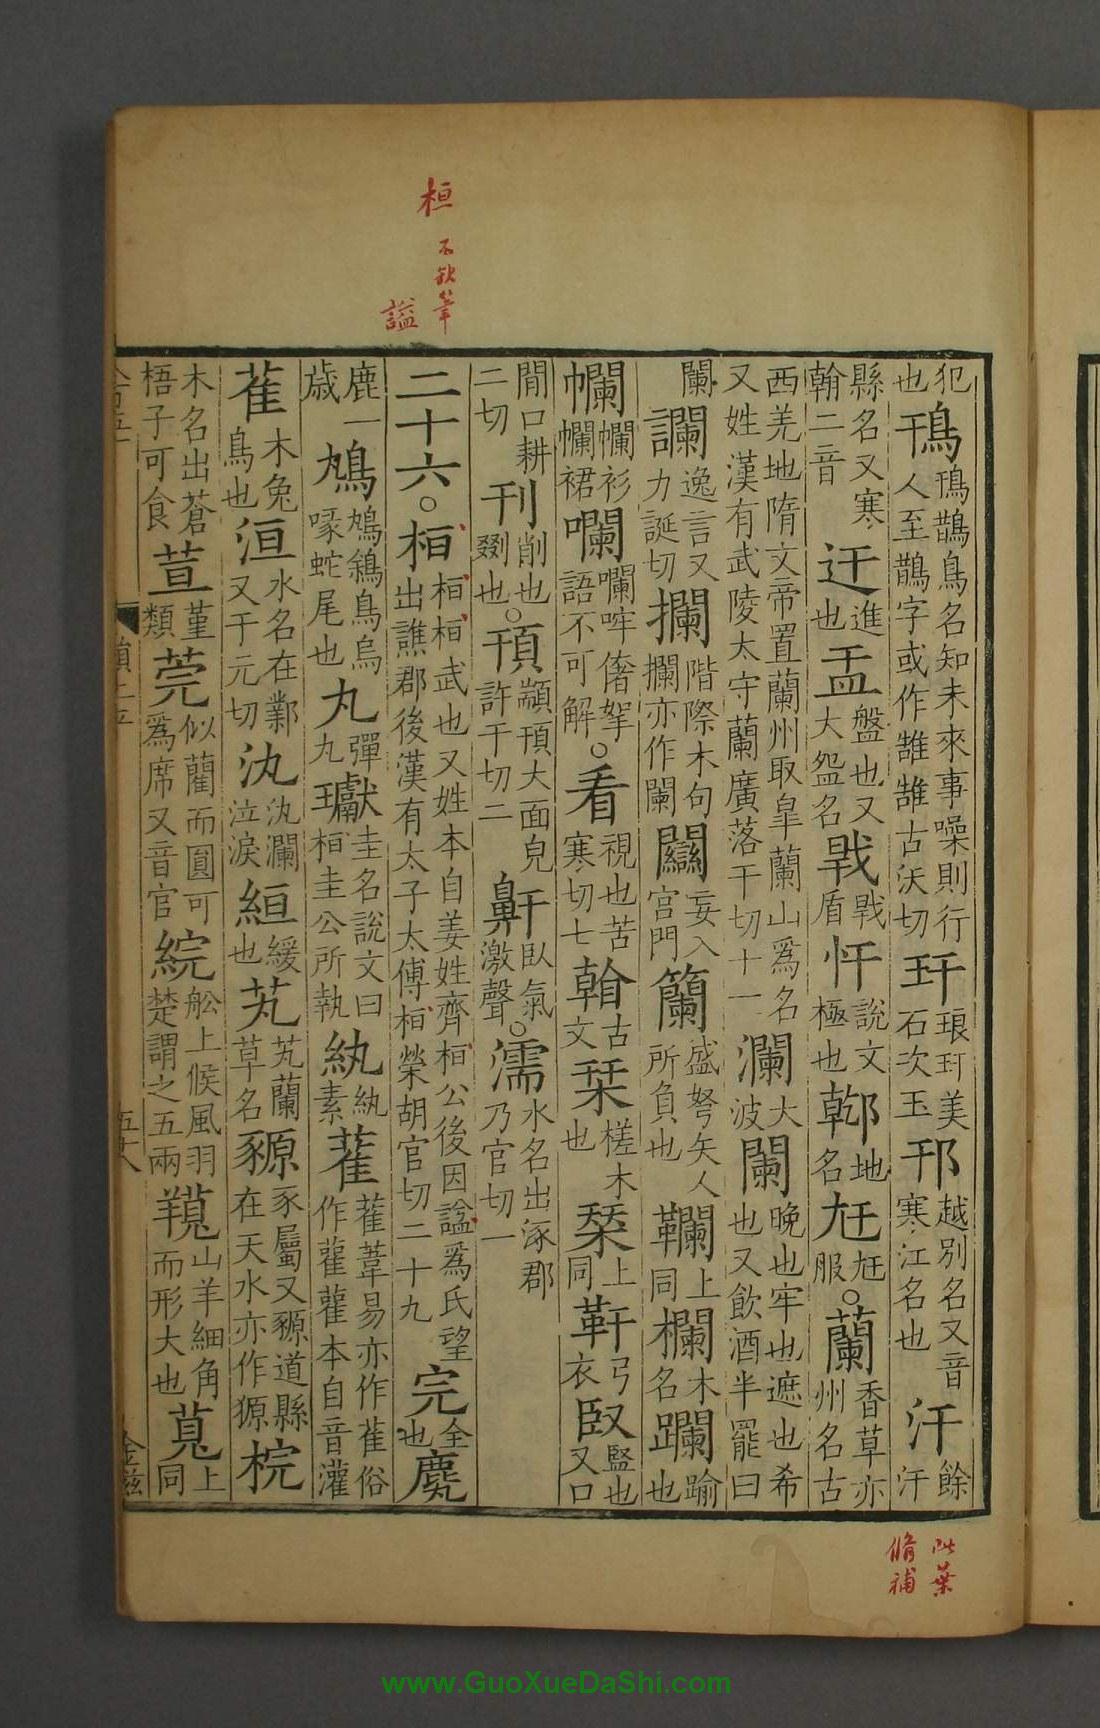 桓 不缺筆
謚
犯也鳱鳱鵲鳥名知未來事噪則行人至鵲字或作䧿䧿古沃切玕琅玕美石次玉邗越別名又音寒江名也汗餘汗
縣名又寒翰二音迂進也盂盤也又大盌名戰戰盾忓說文極也鄿地名尪尪服○蘭香草亦州名古
西羌地隋文帝置蘭州取皐蘭山爲名又姓漢有武陵太守蘭廣落干切十一瀾大波闌晚也牢也遮也希也又飲酒半罷曰
闌讕逸言又力誕切攔階際木句攔亦作闌𨷻妄入宮門籣盛弩矢人所負也韊上同欄木名躝踰也
幱幱衫幱裙囒囒哰僐拏語不可解○看視也苦寒切七𩹉古文栞槎木也琹上同靬弓衣臤堅也又口
閒口耕二切刊削也剟也○頇顢頇大面皃許干切二鼾臥氣激聲○濡水名出涿郡乃官切一
二十六○桓桓桓武也又姓本自姜姓齊桓公後因謚爲氏望出譙郡後漢有太子太傅桓榮胡官切二十九完全也麌
鹿一歳鳩鳩鵴鳥烏喙蛇尾也丸彈丸瓛圭名說文曰桓圭公所執紈紈素雚雚葦易亦作萑俗作雚雚本自音灌
萑木兔鳥也洹水名在鄴又于元切汍汍瀾泣淚絙緩也芄芄蘭草名豲豕屬又豲道縣在天水亦作獂梡
木名出蒼梧子可食荁堇類莞似藺而圓可爲席又音官綄舩上候風羽楚謂之五兩羱山羊細角而形大也莧上同
五十八
金滋
此葉
脩補
www.GuoXueDaShi.com